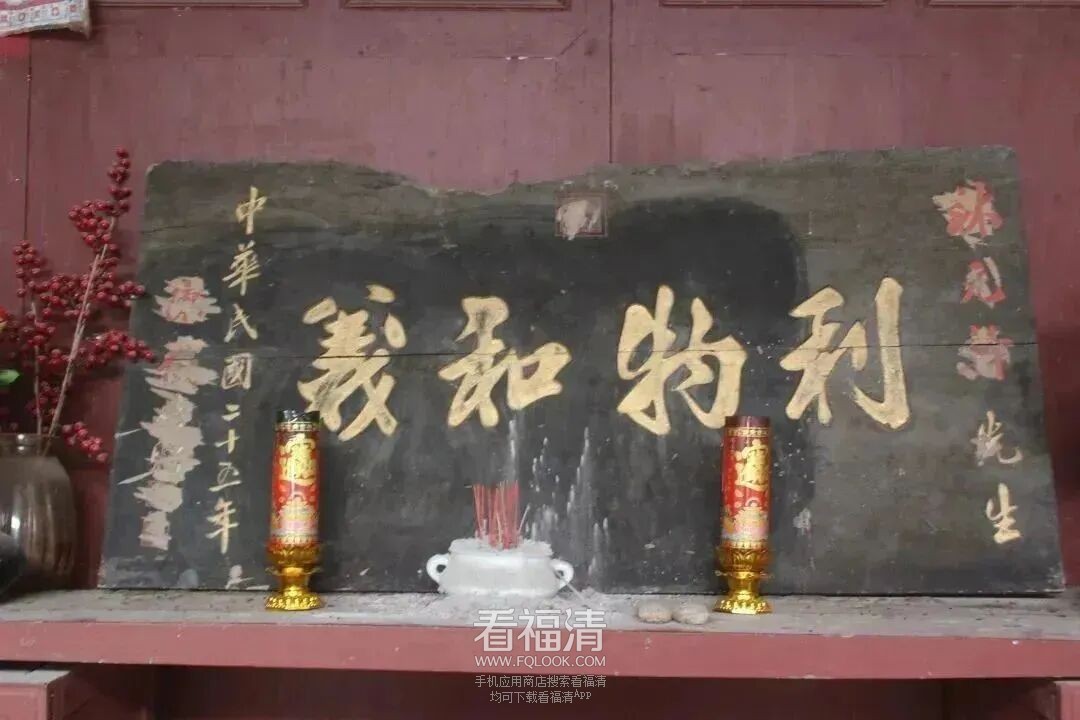 先生
利物和義
中華民國二十五年
看福清
WWW.FQLOOK.COM
手机应用商店搜索看福清
均可下载看福清App